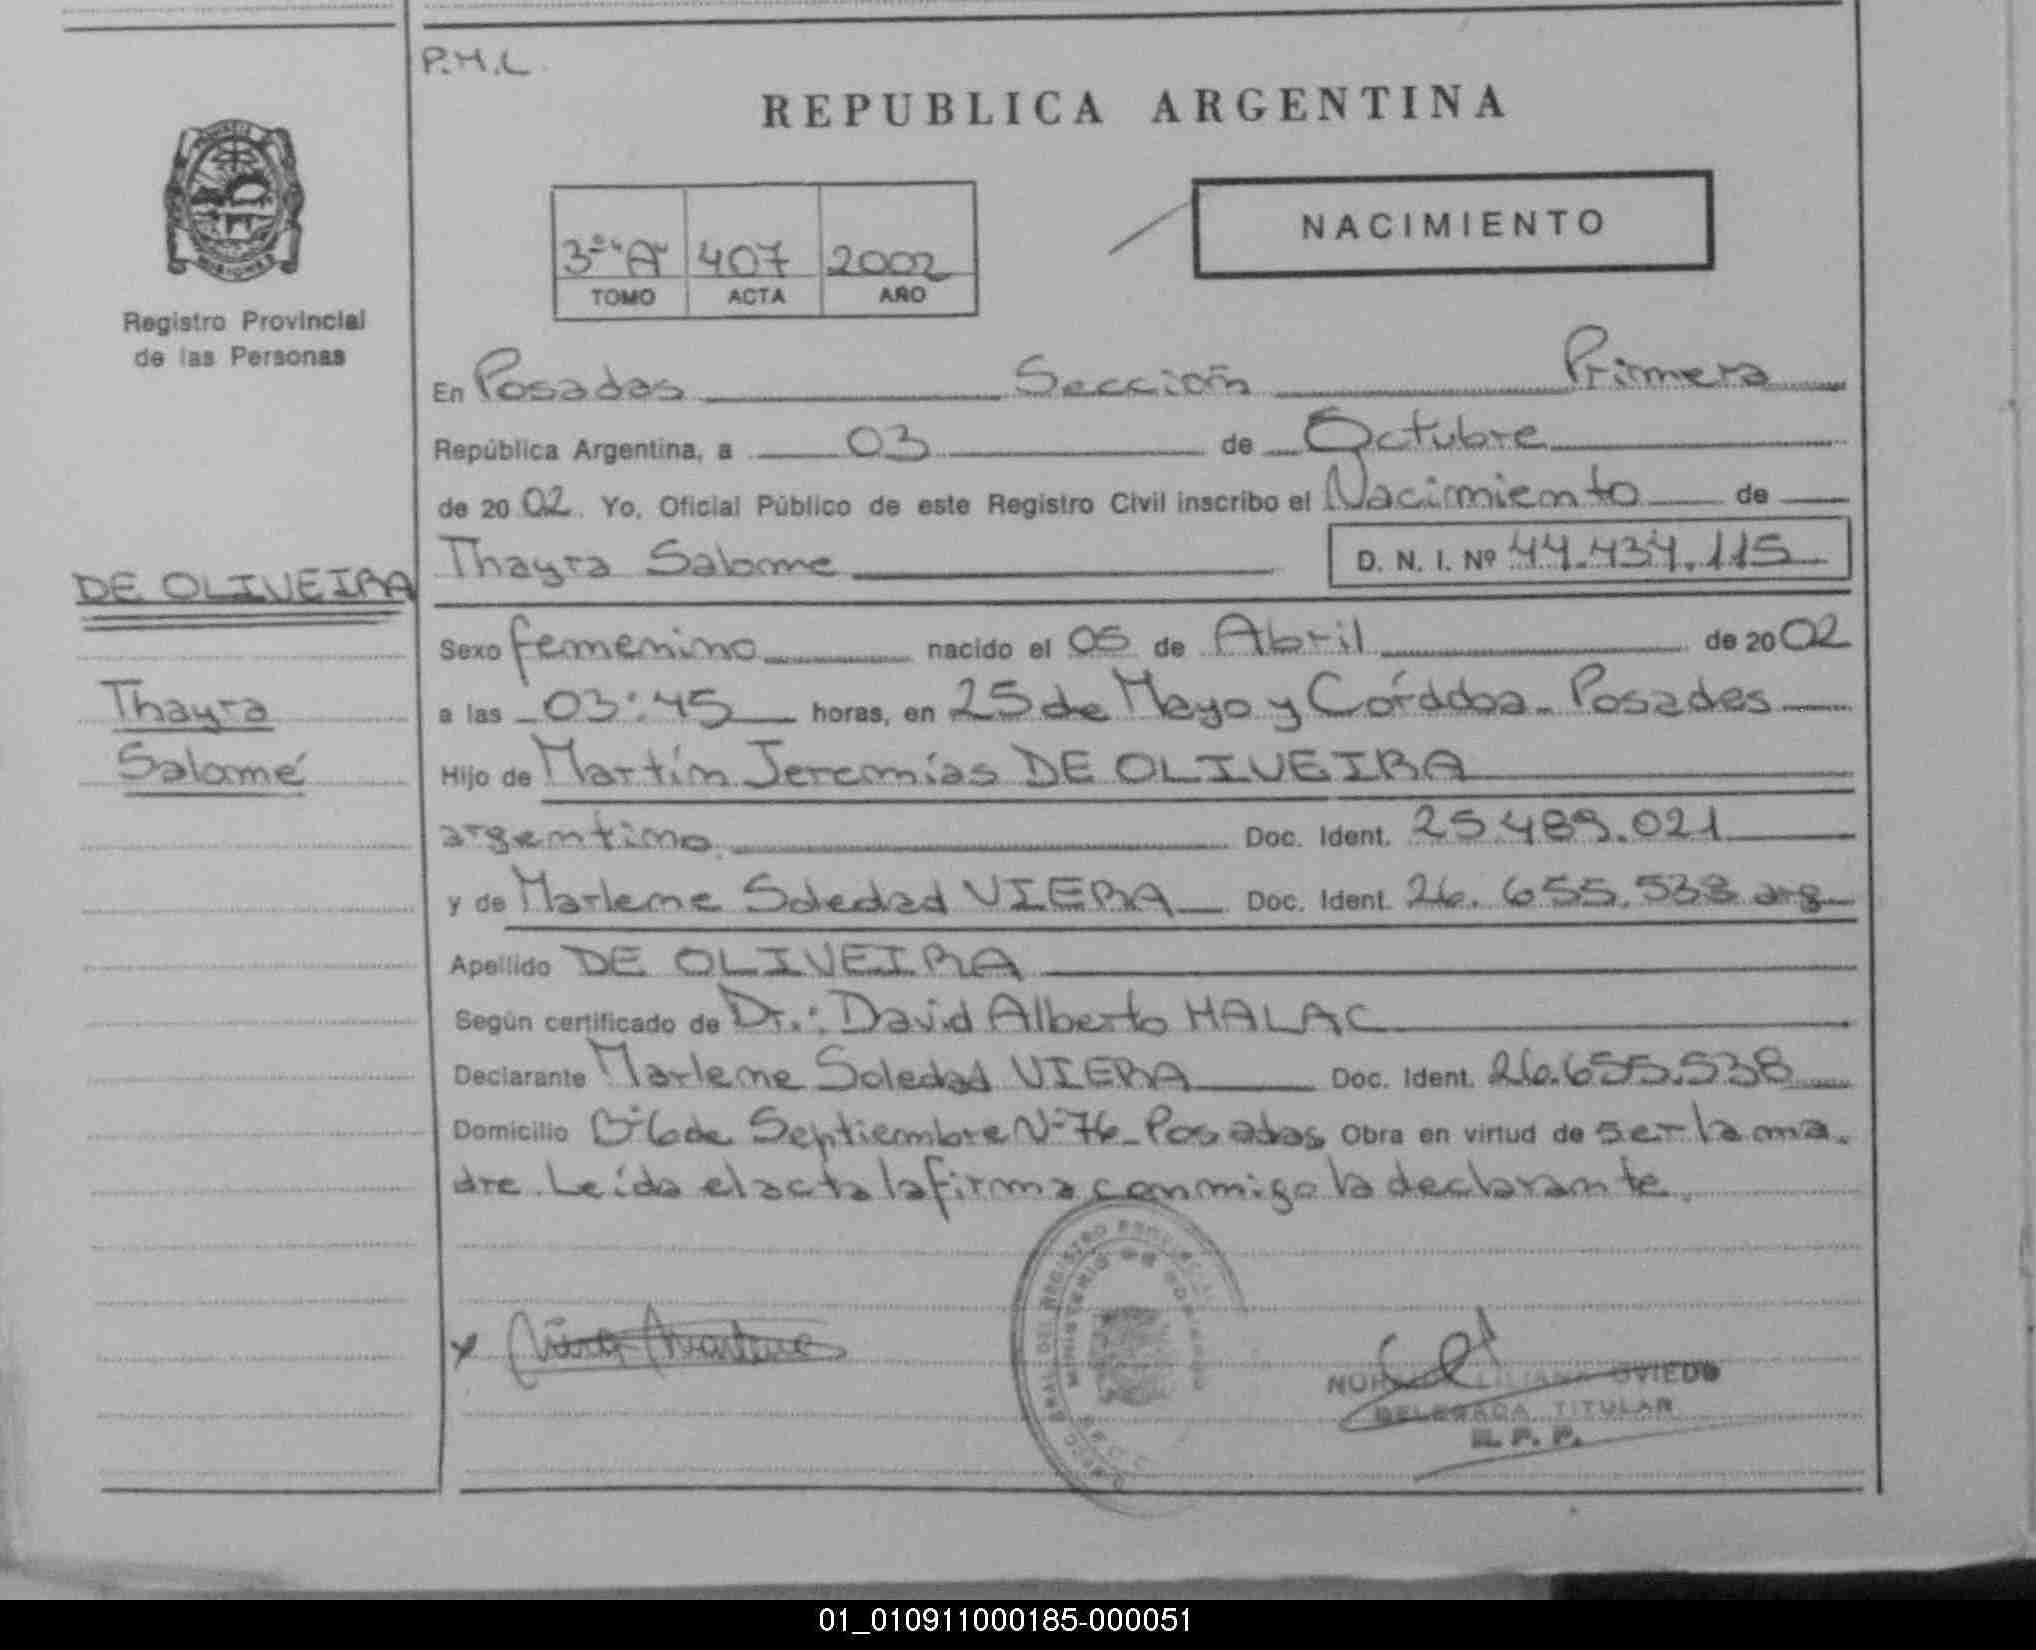 P.H.L.
REPUBLICA ARGENTINA
NACIMIENTO
3º "A" 407 2002
TOMO ACTA AÑO
MISIONES
Registro Provincial
de las Personas
En Posadas Sección Primera
República Argentina, a 03 de Octubre
de 2002. Yo, Oficial Público de este Registro Civil inscribo el Nacimiento de
Thayra Salome D. N. I. Nº 44.434.115
DE OLIVEIRA
Thayra
Salomé
Sexo femenino nacido el 05 de Abril de 2002
a las 03:45 horas, en 25 de Mayo y Córdoba - Posadas
Hijo de Martín Jeremías DE OLIVEIRA
argentino. Doc. Ident. 25.489.021
y de Marlene Soledad VIERA Doc. Ident. 26.655.538 arg
Apellido DE OLIVEIRA
Según certificado de Dr.: David Alberto HALAC
Declarante Marlene Soledad VIERA Doc. Ident. 26.655.538
Domicilio Bº 6 de Septiembre Nº 76 - Posadas Obra en virtud de ser la ma-
dre. Leída el acta la firma conmigo la declarante.
LILIANA OVIEDO
DELEGADA TITULAR
R. P. P.
01_010911000185-000051